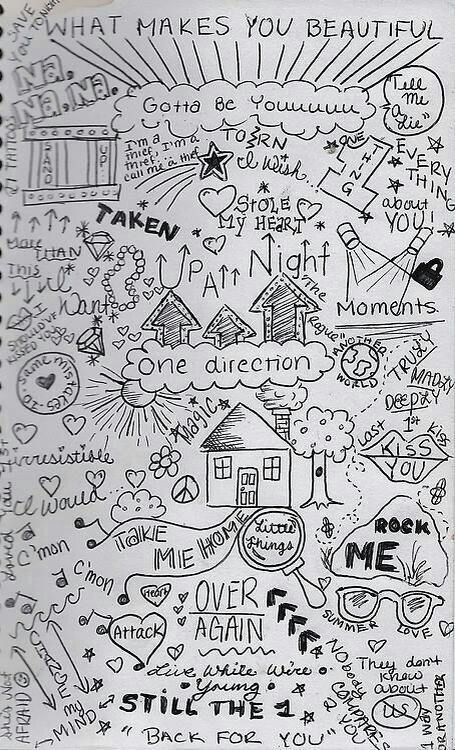 SAVE
YOU TONIGHT
WHAT MAKES YOU BEAUTIFUL
Na,
Na, Na.
Gotta Be Youuuuuu
Tell
Me
A
Lie
STAND
UP
I'm a
thief, I'm a
thief, call me a thief
TORN
I Wish...
ONE
THING
EVERY
THING
about
YOU
TAKEN
STOLE
MY HEART
More
THAN
This
UP All Night
I
Want
Moments
The
Rogue
SHOULD'VE
KISSED YOU
One direction
ANOTHER
WORLD
TRULY
MADLY
DEEPLY
Same mistakes
Magic
Last
1st
Kiss
KISS
YOU
irresistible
I Would
C'mon
C'mon
TAKE
ME HOME
Little
Things
ROCK
ME
Heart
Attack
OVER
AGAIN
SUMMER
LOVE
Live While We're
Young
NOBODY
COMPARES
2 YOU
They don't
know
about
US
She's Not
AFRAID
my
MIND
STILL THE 1
"BACK FOR YOU"
1 WAY
OR ANOTHER